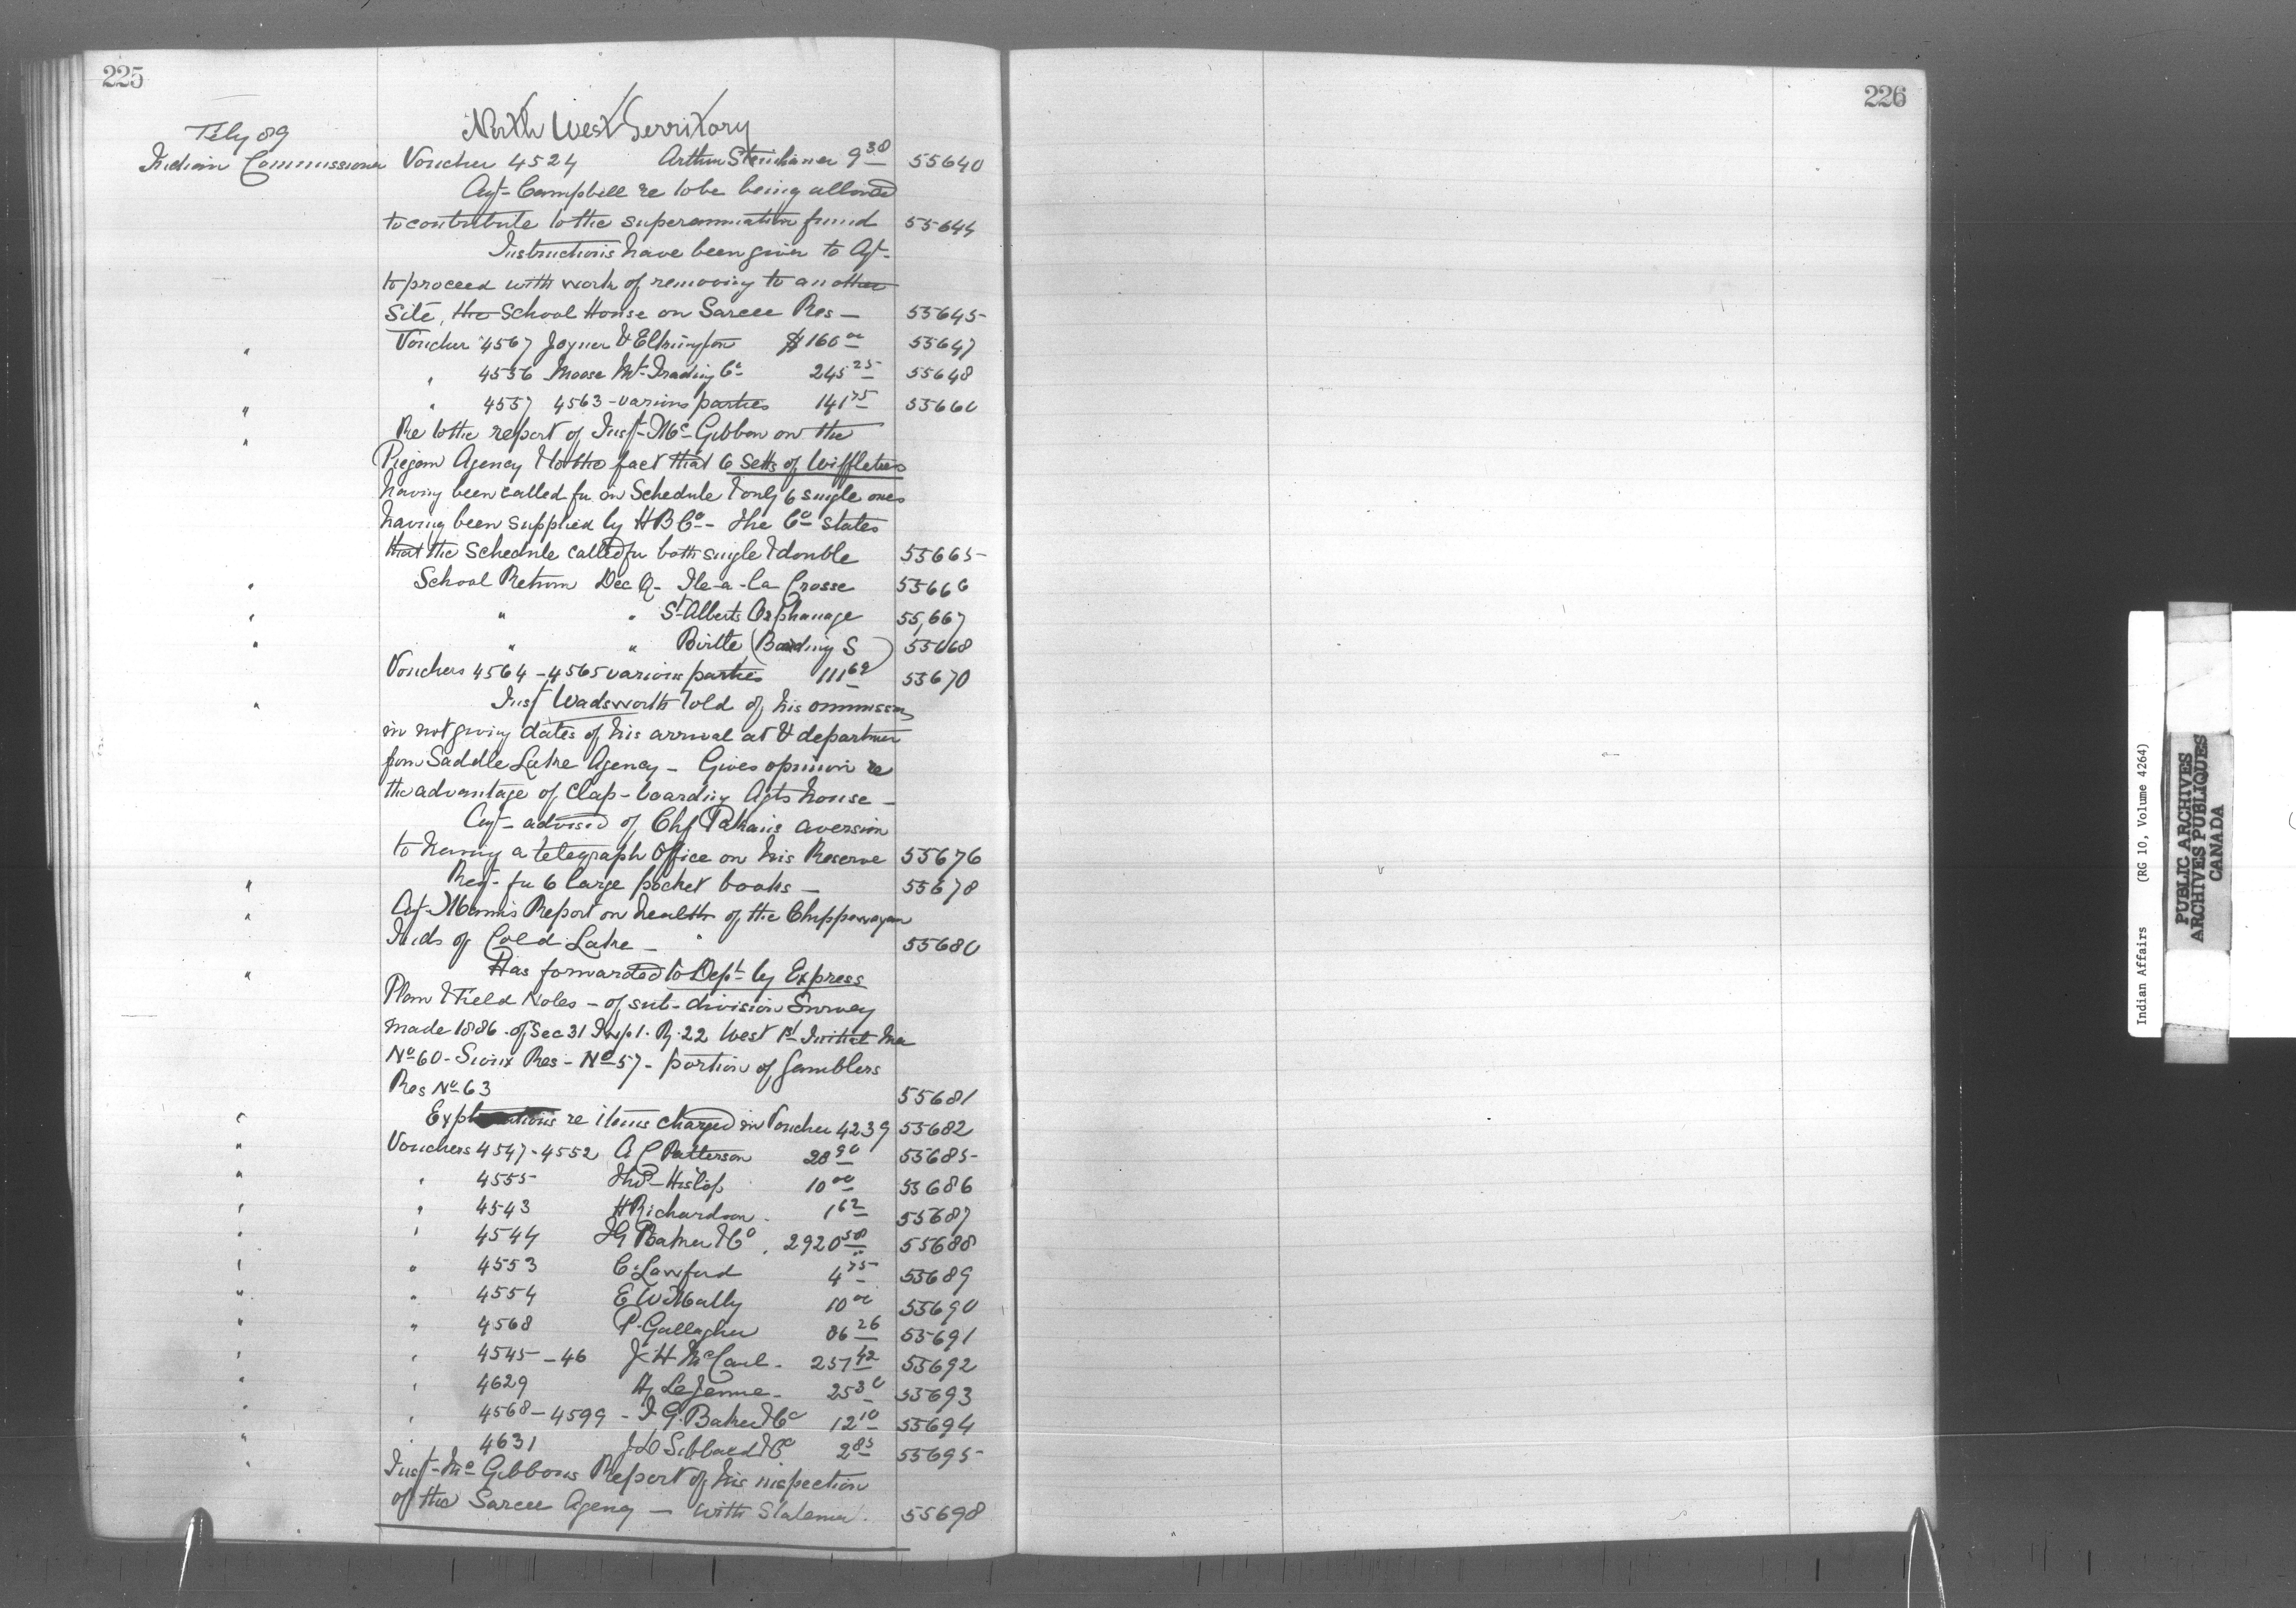 225
226
North West Territory
Feby 89
Indian Commissioner Voucher 4524 Arthur Steinhauer 9 30 55640
Agt- Campbell re to be being allowed
to contribute to the superannuation fund 55644
Instructions have been given to Agt-
to proceed with work of removing to another
Site, the School House on Sarcee Res - 55645
" Voucher 4567 Joyner & Elkington $160 00 55647
" 4556 Moose Mt- Trading Co- 245 25 55648
" " 4557 4563 - various parties 141 75 55660
" Re to the report of Insp- Mc Gibbon on the
Piegan Agency & to the fact that 6 Setts of Wiffletrees
having been called for on Schedule & only 6 single ones
having been supplied by H B Co- The Co states
that the Schedule called for both single & double 55665
" School Return Dec Q- Ile-a-la Crosse 55666
" " " St Alberts Orphanage 55,667
" " " Birtle (Boarding S) 55668
Vouchers 4564 - 4565 various parties 111 62 55670
" Insp Wadsworth told of his ommission
in not giving dates of his arrival at & departure
from Saddle Lake Agency - Gives opinion re
the advantage of Clap-boarding Agts house -
Agt- advised of Chf Pakans aversion
to having a telegraph Office on his Reserve 55676
" Req- for 6 large pocket books - 55678
" Agt- Manns Report on health of the Chippewayan
Inds of Cold Lake - 55680
" Has forwarded to Dept by Express
Plan & Field Notes - of sub-division Survey
made 1886. of Sec 31 Twp 1. R. 22 West 1st Initial Mer
No 60 - Sioux Res - No 57 - portion of Gamblers
Res No 63 55681
" Explanations re items charged in Voucher 4239 55682
" Vouchers 4547 - 4552 A C Patterson 20 90 55685
" " 4555 Thos- Hislop 10 00 55686
" " 4543 H Richardson - 1 62 55687
" " 4544 I G Baker & Co. 2920 58 55688
" " 4553 C Lawford 4 75 55689
" " 4554 E W McNally 10 00 55690
" " 4568 P. Gallagher 86 26 55691
" " 4545 - 46 J H McCaul - 257 42 55692
" " 4629 H LeJeune - 25 30 55693
" " 4568 - 4599 - I G. Baker & Co 12 10 55694
" " 4631 J D Sibbald & Co 2 85 55695
" Insp- Mc Gibbons Report of his inspection
of the Sarcee Agency - with Statemen. 55698
Indian Affairs (RG 10, Volume 4264)
PUBLIC ARCHIVES
ARCHIVES PUBLIQUES
CANADA